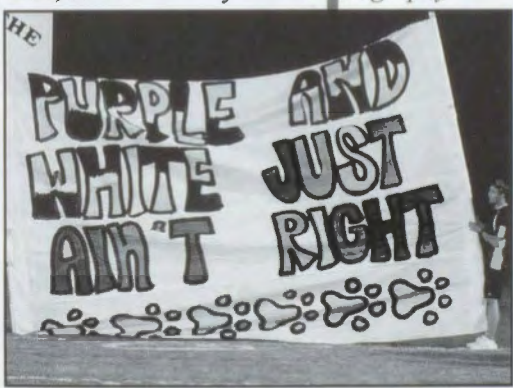 THE
PURPLE AND
WHITE JUST
AIN'T RIGHT